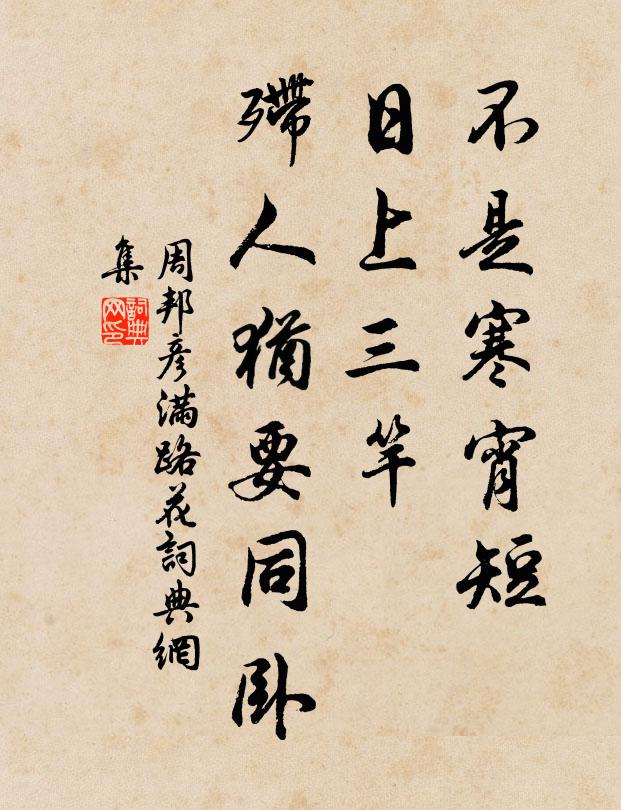 不是寒宵短
日上三竿
殢人猶要同卧
周邦彦滿路花詞典網
集
詞典網印